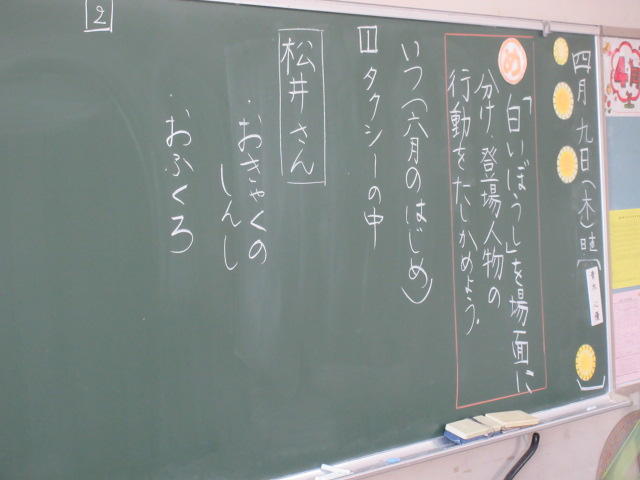 四月九日(木)晴
め
「白いぼうし」を場面に
分け、登場人物の
行動をたしかめよう。
いつ(六月のはじめ)
1
タクシーの中
松井さん
・おきゃくの
しんし
・おふくろ
2
4月